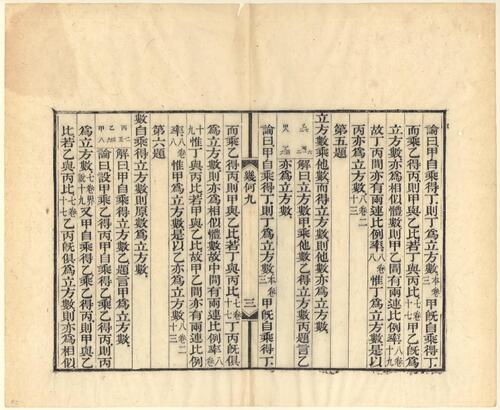 論曰甲自乘得丁則丁為立方數本卷三甲既自乘得丁
而乘乙得丙則甲與乙比若丁與丙比七卷十七甲乙既為
立方數亦為相似體數則甲乙間有兩連比例率八卷十九
故丁丙間亦有兩連比例率八卷八惟丁為立方數是以
丙亦為立方數八卷二十三
第五題
立方數乘他數而得立方數則他數亦為立方數
解曰立方數甲乘他數乙得立方數丙題言乙
亦為立方數
論曰甲自乘得丁則丁為立方數本卷三甲既自乘得丁
幾何九
三
而乘乙得丙則甲與乙比若丁與丙比七卷十七丁丙既俱
為立方數則亦為相似體數故中間有兩連比例率八卷
十九惟丁與丙比若甲與乙比故甲乙間亦有兩連比例
率八卷八惟甲為立方數是以乙亦為立方數八卷二十三
第六題
數自乘得立方數則原數為立方數
解曰甲自乘得立方數乙題言甲為立方數
論曰設甲乘乙得丙甲自乘得乙乘乙得丙則丙
為立方數七卷界說十九又甲自乘得乙乘乙得丙則甲與乙
比若乙與丙比七卷十七乙丙既俱為立方數則亦為相似